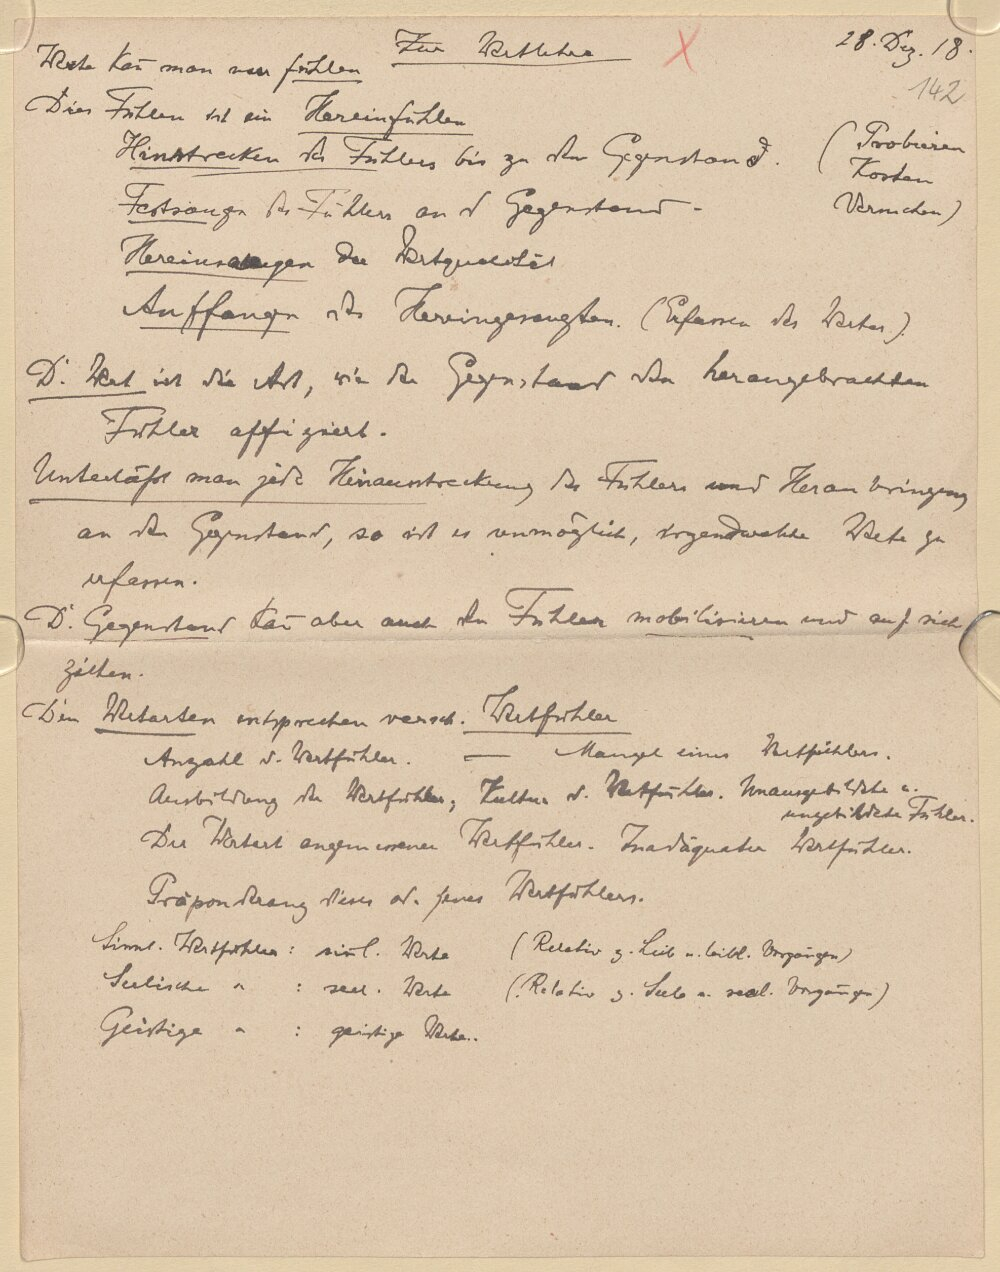 Zur Wertlehre
28. Dez. 18.
142
Werte kañ man nur fühlen
Dies Fühlen ist ein Hereinfühlen
Hinstrecken des Fühlers bis zu dem Gegenstand. (Probieren
Kosten
Versuchen)
Festsaugen des Fühlers an d Gegenstand -
Hereinsaugen der Wertqualität
Auffangen des Hereingesaugten. (Erfassen des Wertes).
D. Wert ist die Art, wie der Gegenstand den herangebrachten
Fühler affiziert.
Unterläßt man jede Hinausstreckung des Fühlers und Heranbringung
an den Gegenstand, so ist es unmöglich, irgendwelche Werte zu
erfassen.
D. Gegenstand kañ aber auch den Fühler mobilisieren und auf sich
ziehen.
Den Wertarten entsprechen versch. Wertfühler
Anzahl d. Wertfühler. — Mangel eines Wertfühlers.
Ausbildung der Wertfühler, Kultur d. Wertfühler. Unausgebildete u.
ungebildete Fühler.
Der Wertart angemessener Wertfühler. Inadäquater Wertfühler.
Präponderanz dieses od. jenes Wertfühlers.
Sinnl. Wertfühler: sinnl. Werte (Relativ z. Leib u. leibl. Vorgängen)
Seelische " : seel. Werte (Relativ z. Seele u. seel. Vorgängen)
Geistige " : geistige Werte..